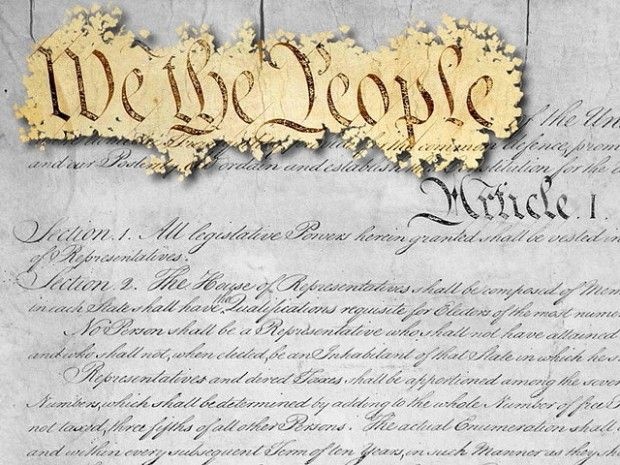 We the People
of the Uni
common defence, prom
and our ordain and establish for the
Article. I.
Section. 1. All legislative Powers herein granted shall be vested in
of Representatives.
Section. 2. The House of Representatives shall be composed of Mem
in each State shall have the Qualifications requisite for Electors of the most numer
No Person shall be a Representative who shall not have attained
and who shall not, when elected, be an Inhabitant of that State in which he s
Representatives and direct Taxes shall be apportioned among the sever
Numbers, which shall be determined by adding to the whole Number of free P
not taxed, three fifths of all other Persons. The actual Enumeration shall
and within every subsequent Term of ten Years, in such Manner as they sh